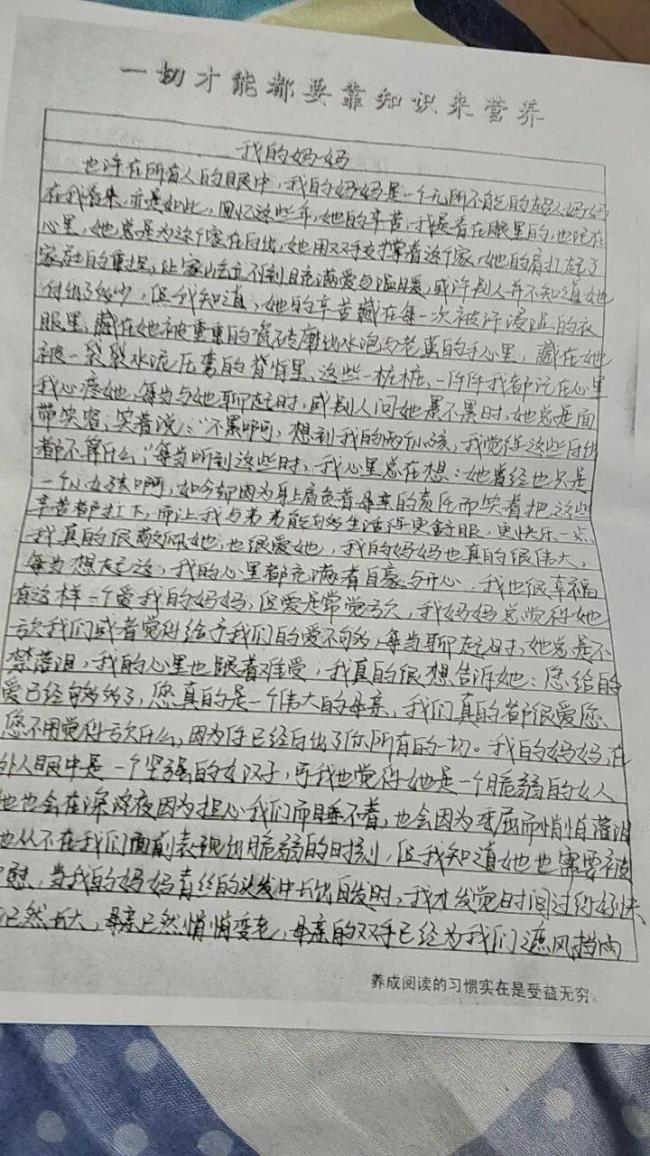 一切才能都要靠知识来营养
我的妈妈
也许在所有人的眼中，我的妈妈是一个无所不能的超人妈妈
在我看来，亦是如此，回忆这些年，她的辛苦我是看在眼里的，也记在
心里，她总是为这个家在付出，她用双手支撑着这个家，她的肩扛起了
家庭的重担，让家庭充满爱与温暖，或许别人并不知道她
付出了多少，但我知道，她的辛苦藏在每一次被汗浸湿的衣
服里，藏在她被重重的瓷砖磨出水泡与老茧的手心里，藏在她
被一袋袋水泥压弯的背脊里，这些一桩桩，一件件我都记在心里
我心疼她，每当与她聊起时，或别人问她累不累时，她总是面
带笑容，笑着说："不累啊，想到我的两个小孩，我觉得这些付出
都不算什么，"每当听到这些时，我心里总在想：她曾经也只是
一个小女孩啊，如今却因为身上肩负着母亲的责任而笑着把这些
辛苦都扛下，而让我与弟弟能够生活得更舒服，更快乐一点，
我真的很敬佩她，也很爱她，我的妈妈也真的很伟大，
每当想起这，我的心里都充满着自豪与开心，我也很幸福
有这样一个爱我的妈妈，但爱是常觉亏欠，我妈妈总觉得她
亏欠我们或者觉得给予我们的爱不够多，每当聊起时，她总是不
禁落泪，我的心里也跟着难受，我真的很想告诉她：您给的
爱已经够多了，您真的是一个伟大的母亲，我们真的都很爱您、
您不用觉得亏欠什么，因为你已经付出了你所有的一切。我的妈妈，在
外人眼中是一个坚强的女汉子，可我也觉得她是一个脆弱的女人
她也会在深夜因为担心我们而睡不着，也会因为委屈而悄悄落泪
也从不在我们面前表现出脆弱的时刻，但我知道她也需要被
慰，当我的妈妈青丝的头发中长出白发时，我才发觉时间过的好快、
已然长大，母亲已然悄悄变老，母亲的双手已经为我们遮风挡雨
养成阅读的习惯实在是受益无穷。